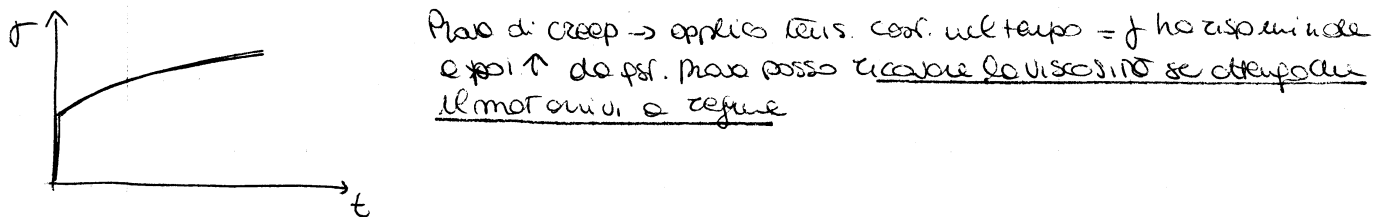 σ
Prova di creep → applico tens. cost. nel tempo = γ ha risp. min da
e poi ↑ da qst. prova posso ricavare la viscosità se attengo che
il mat arrivi a regime
t